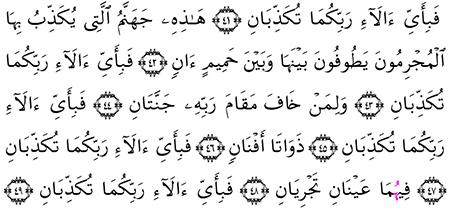 فَبِأَىِّ ءَالَآءِ رَبِّكُمَا تُكَذِّبَانِ ﴿٤١﴾ هَٰذِهِۦ جَهَنَّمُ ٱلَّتِى يُكَذِّبُ بِهَا
ٱلْمُجْرِمُونَ يَطُوفُونَ بَيْنَهَا وَبَيْنَ حَمِيمٍ ءَانٍ ﴿٤٢﴾ فَبِأَىِّ ءَالَآءِ رَبِّكُمَا
تُكَذِّبَانِ ﴿٤٣﴾ وَلِمَنْ خَافَ مَقَامَ رَبِّهِۦ جَنَّتَانِ ﴿٤٤﴾ فَبِأَىِّ ءَالَآءِ
رَبِّكُمَا تُكَذِّبَانِ ﴿٤٥﴾ ذَوَاتَا أَفْنَانٍ ﴿٤٦﴾ فَبِأَىِّ ءَالَآءِ رَبِّكُمَا تُكَذِّبَانِ
﴿٤٧﴾ فِيهُمَا عَيْنَانِ تَجْرِيَانِ ﴿٤٨﴾ فَبِأَىِّ ءَالَآءِ رَبِّكُمَا تُكَذِّبَانِ ﴿٤٩﴾